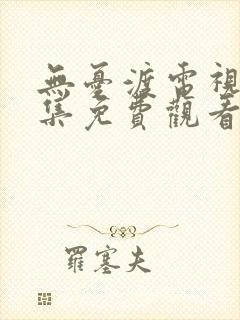 無憂渡電視
集免費觀看
羅塞夫